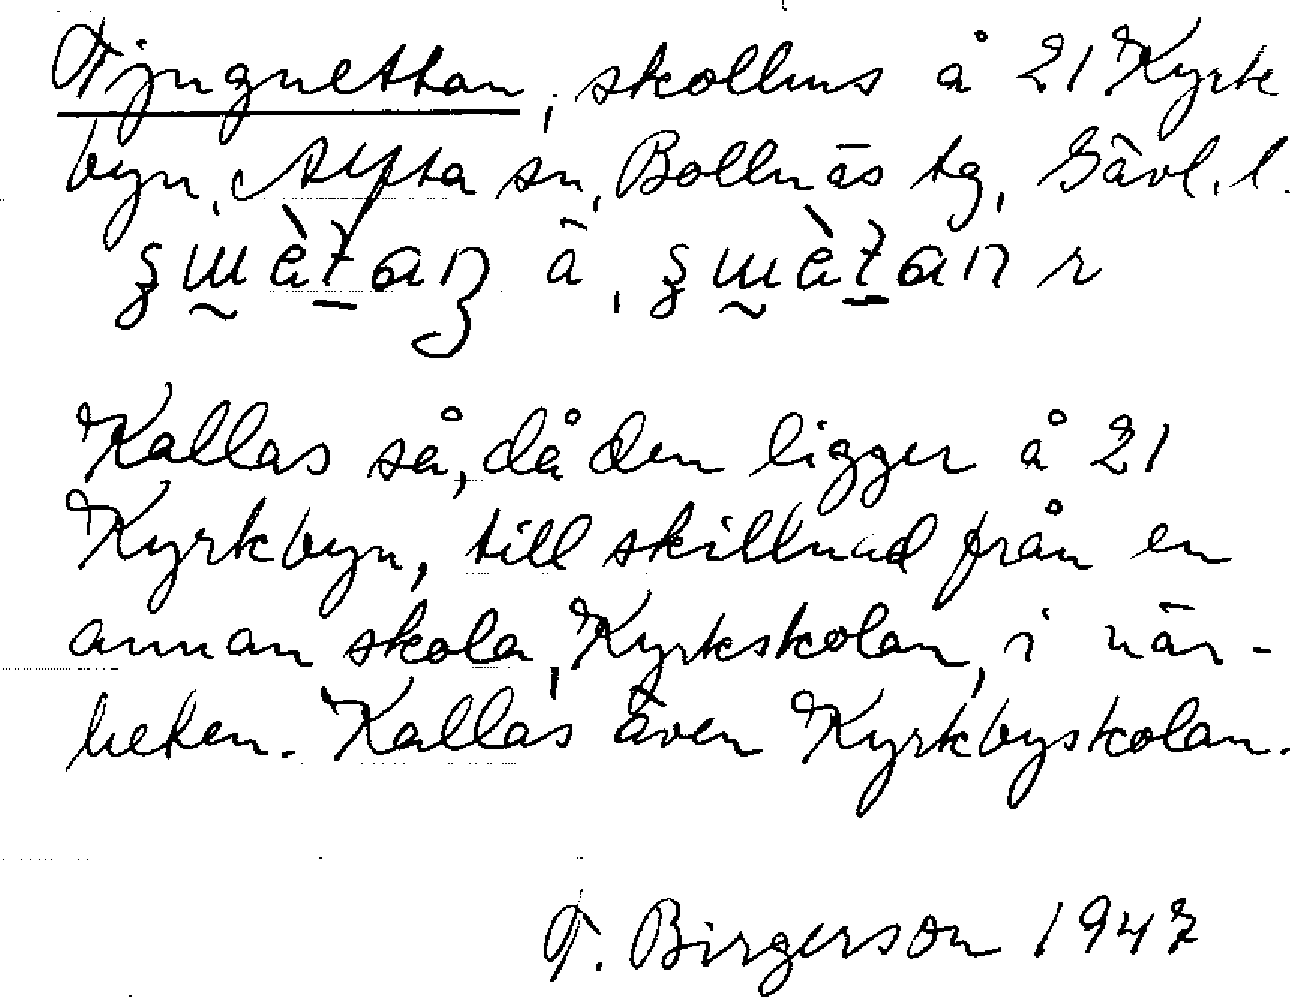 Tjuguettan, skolhus å 21 Kyrk
byn, Alfta sn, Bollnäs tg, Gävl. l.
å
Kallas så, då den ligger å 21
Kyrkbyn, till skillnad från en
annan skola, Kyrkskolan, i när-
heten. Kallas även Kyrkbyskolan.
T. Birgerson 1947